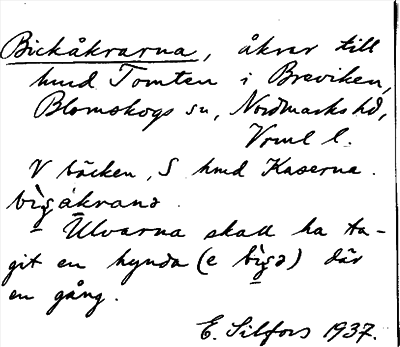 Bickåkrarna, åkrar till
hmd Tomten i Breviken,
Blomskogs sn, Nordmarks hd,
Vrml l.
V bäcken, S hmd Kaserna.
bìg̱åkranə
Ulvarna skall ha ta-
git en hynda (e bìg̱ə) där
en gång.
E. Silfors 1937.